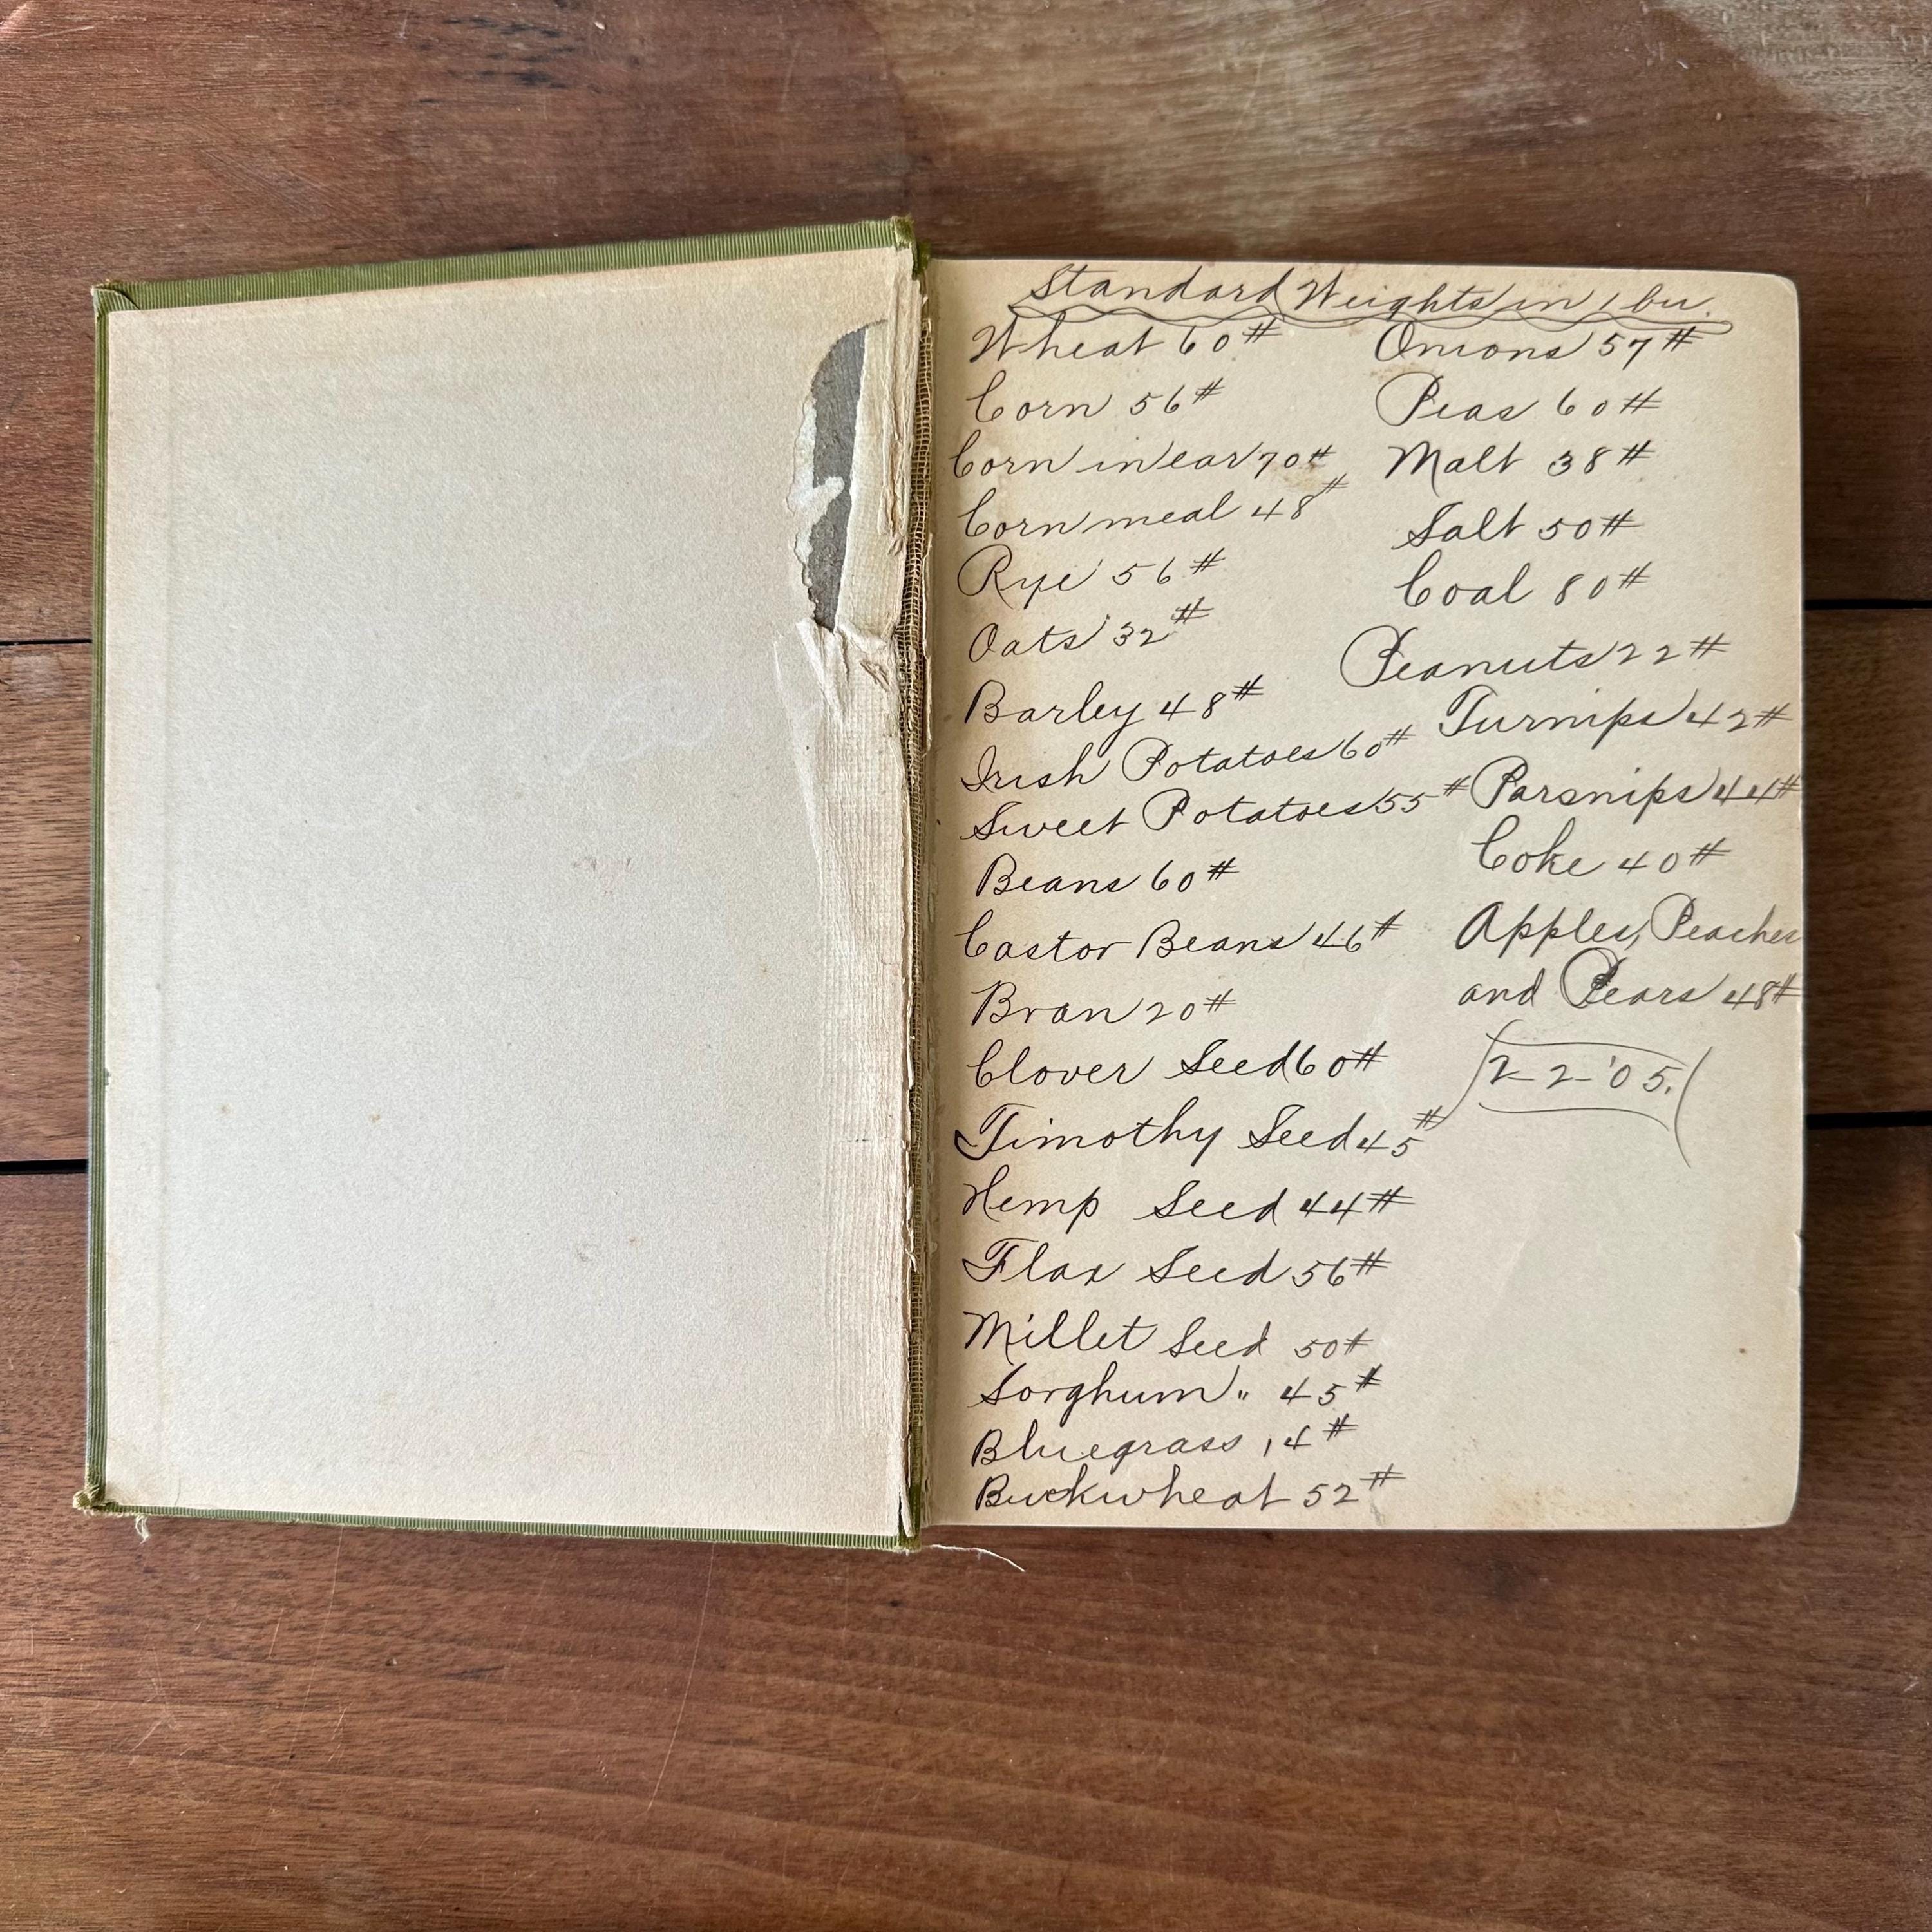 Standard Weights in 1 bu.
Wheat 60#
Corn 56#
Corn in ear 70#
Corn meal 48#
Rye 56#
Oats 32#
Barley 48#
Irish Potatoes 60#
Sweet Potatoes 55#
Beans 60#
Castor Beans 46#
Bran 20#
Clover Seed 60#
Timothy Seed 45#
Hemp Seed 44#
Flax Seed 56#
Millet Seed 50#
Sorghum " 45#
Bluegrass 14#
Buckwheat 52#
Onions 57#
Peas 60#
Malt 38#
Salt 50#
Coal 80#
Peanuts 22#
Turnips 42#
Parsnips 44#
Coke 40#
Apples, Peaches
and Pears 48#
2-2-'05.